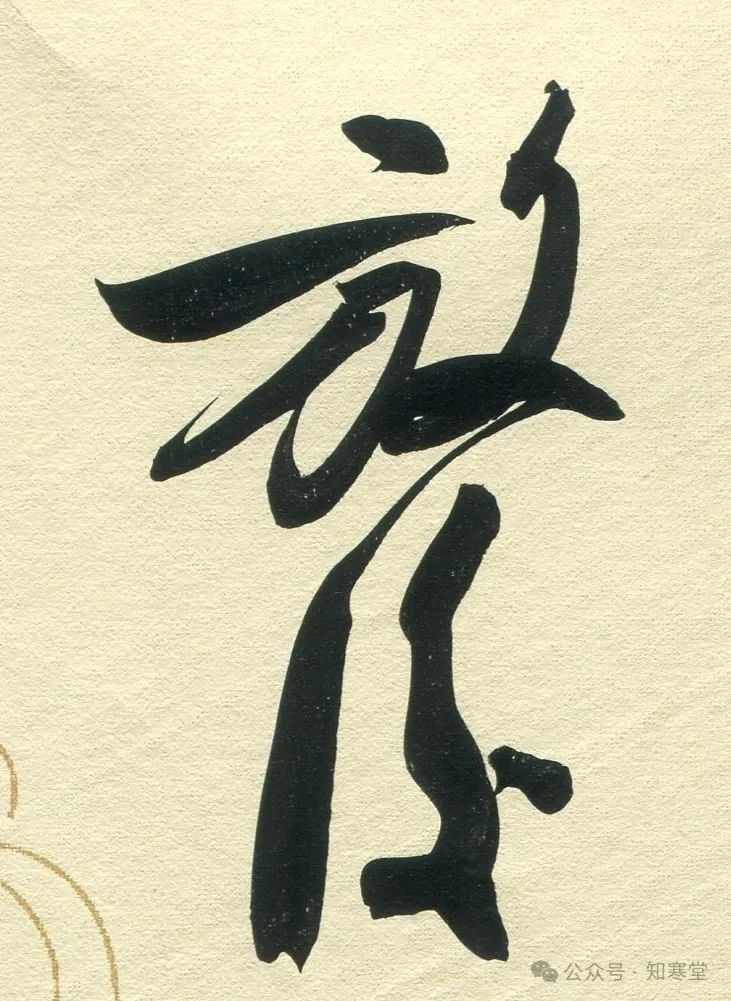 放
公众号·知寒堂